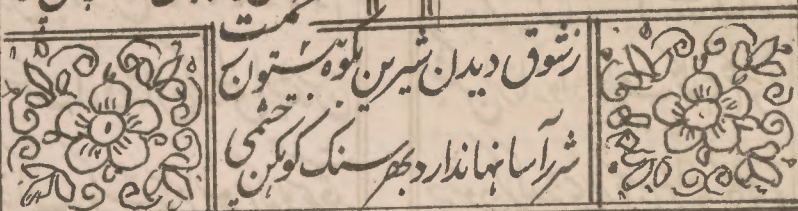 زشوق دیدن شیرین بکوه بیستون
شررآسا نهاندارد بهر سنک کوهکن چشمی